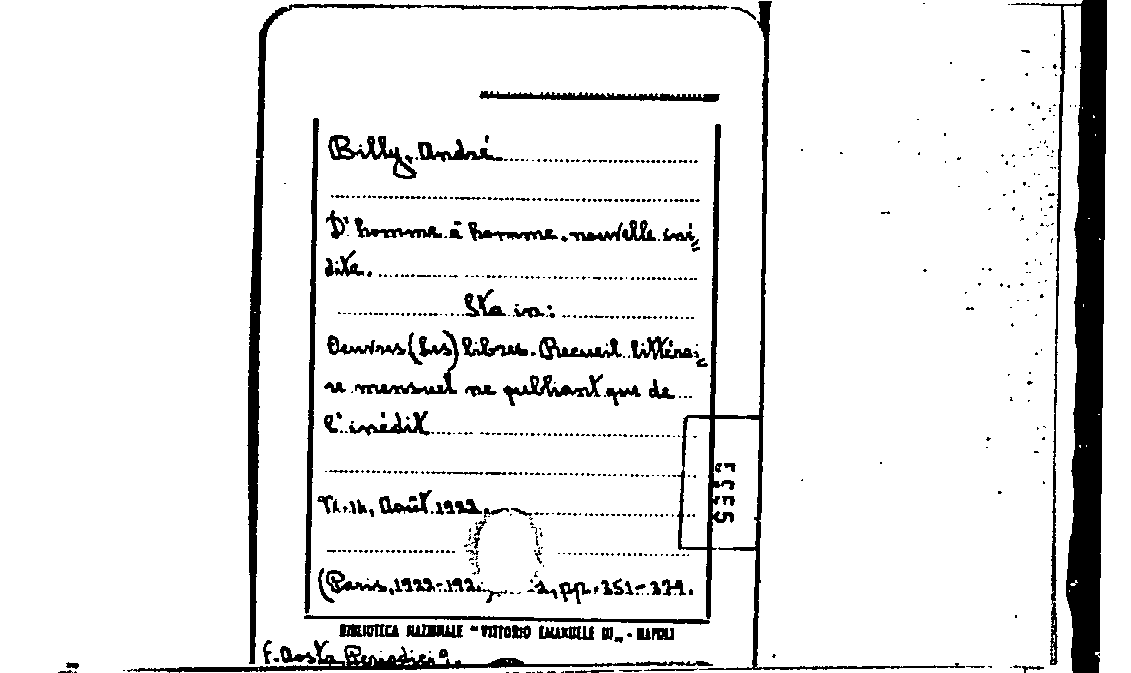 Billy, André
D'homme à homme. nouvelle iné
dite.
Sta in:
Oeuvres (Les) libres. Recueil littérai
re mensuel ne publiant que de
l'inédit
Août 1922.
(Paris, 1922-192 pp. 351-379.
BIBLIOTECA NAZIONALE "VITTORIO EMANUELE III„ - NAPOLI
F. Aosta Periodici 9.